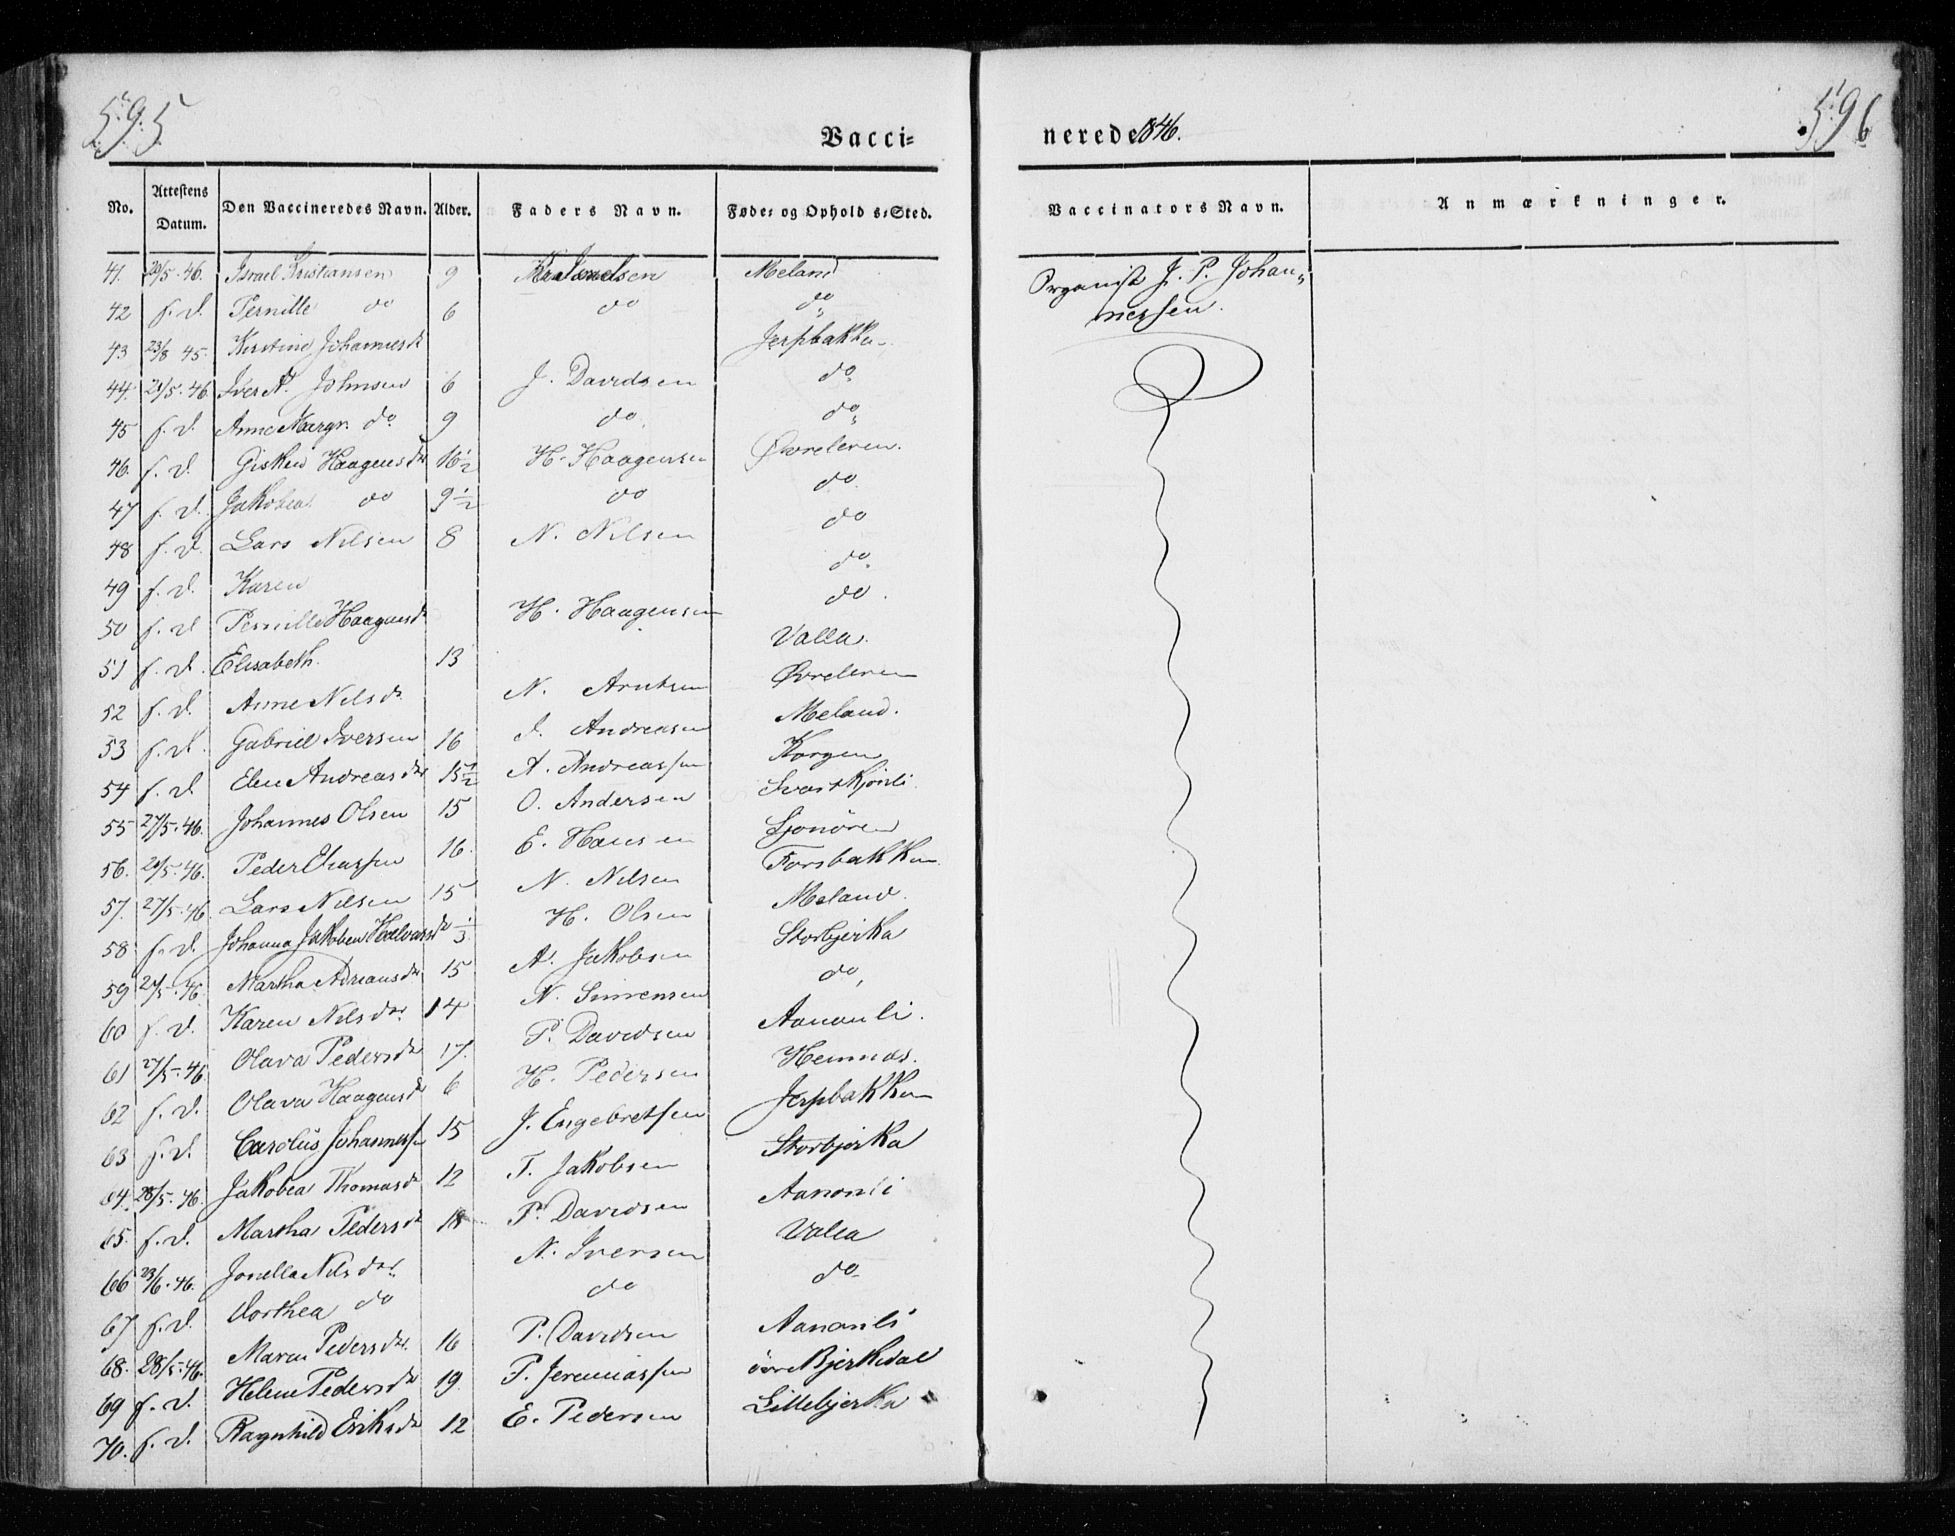 595
596
Vacci=
nerede 1846.
No. Attestens Datum. Den Vaccineredes Navn. Alder. Faders Navn. Føde= og Opholds=Sted. Vaccinators Navn. Anmærkninger.
41. 20/5. 46. Israel Kristiansen 9 Meland Organist J. P. Johan„
42 f. d. Pernille do 6 do do„ nessen.
43 23/8 45. Kirstine Johannesdr Jerpbakka
44. 20/5. 46. Iver A. Johnsen 6 J. Davidsen do
45 f. d. Anne Margr. do 9 do. do„
46. f. d. Gisken Haagensdr 16½ H. Haagensen Øvreleren.
47 f. d. Jakobea do 9½ do do.
48 f. d. Lars Nilsen 8 N. Nilsen do
49 f. d. Karen do.
50 f. d Pernille Haagensdr H. Haagensen do.
51 f. d. Elisabeth. 13 Valla.
52 f. d. Anne Nilsdr N. Arntsen Øvreleren
53 f. d. Gabriel Iversen 16 I. Andreasen Meland.
54 f. d Elen Andreasdr 15½ A. Andreassen Korgen
55 27/5. 46. Johannes Olsen 15 O. Andersen
56. 20/5. 46. Peder 16. E. Hansen
57. 27/5. 46. Lars Nilsen 15 N. Nilsen Forsbakken
58 f. d. Johanna Jakobea Halvarsdr ⅓ H. Olsen Meland.
59 46. Martha Adriansdr 15 A. Jakobsen Storbjerka
60 f. d. Karen Nilsdr 14 N. Simensen do,
61 27/5. 46. Olava Pedersdr 17. P. Davidsen Aanonli.
62 f. d. Olava Haagensdr 6 H. Pedersen Hemnæs.
63 f. d. Carolius Johannessen 15 J. Engebretsen Jerpbakken
64. 28/5. 46. Jakobea Thomasdr 12 T. Jakobsen Storbjerka
65. f. d. Martha Pedersdr 18 P. Davidsen Aanonli
66 23/6. 46. Jonella Nilsdr N. Iversen Valla
67 f. d. Dorthea do do do
68. 28/5. 46. Maren Pedersdr. 16 P. Davidsen Aanonli
69 f. d. Helene Pedersdr 19 P. Jeremiassen øvre Bjerkedal
70. f. d. Ragnhild Eriksdr 12 E. Pedersen Lillebjerka